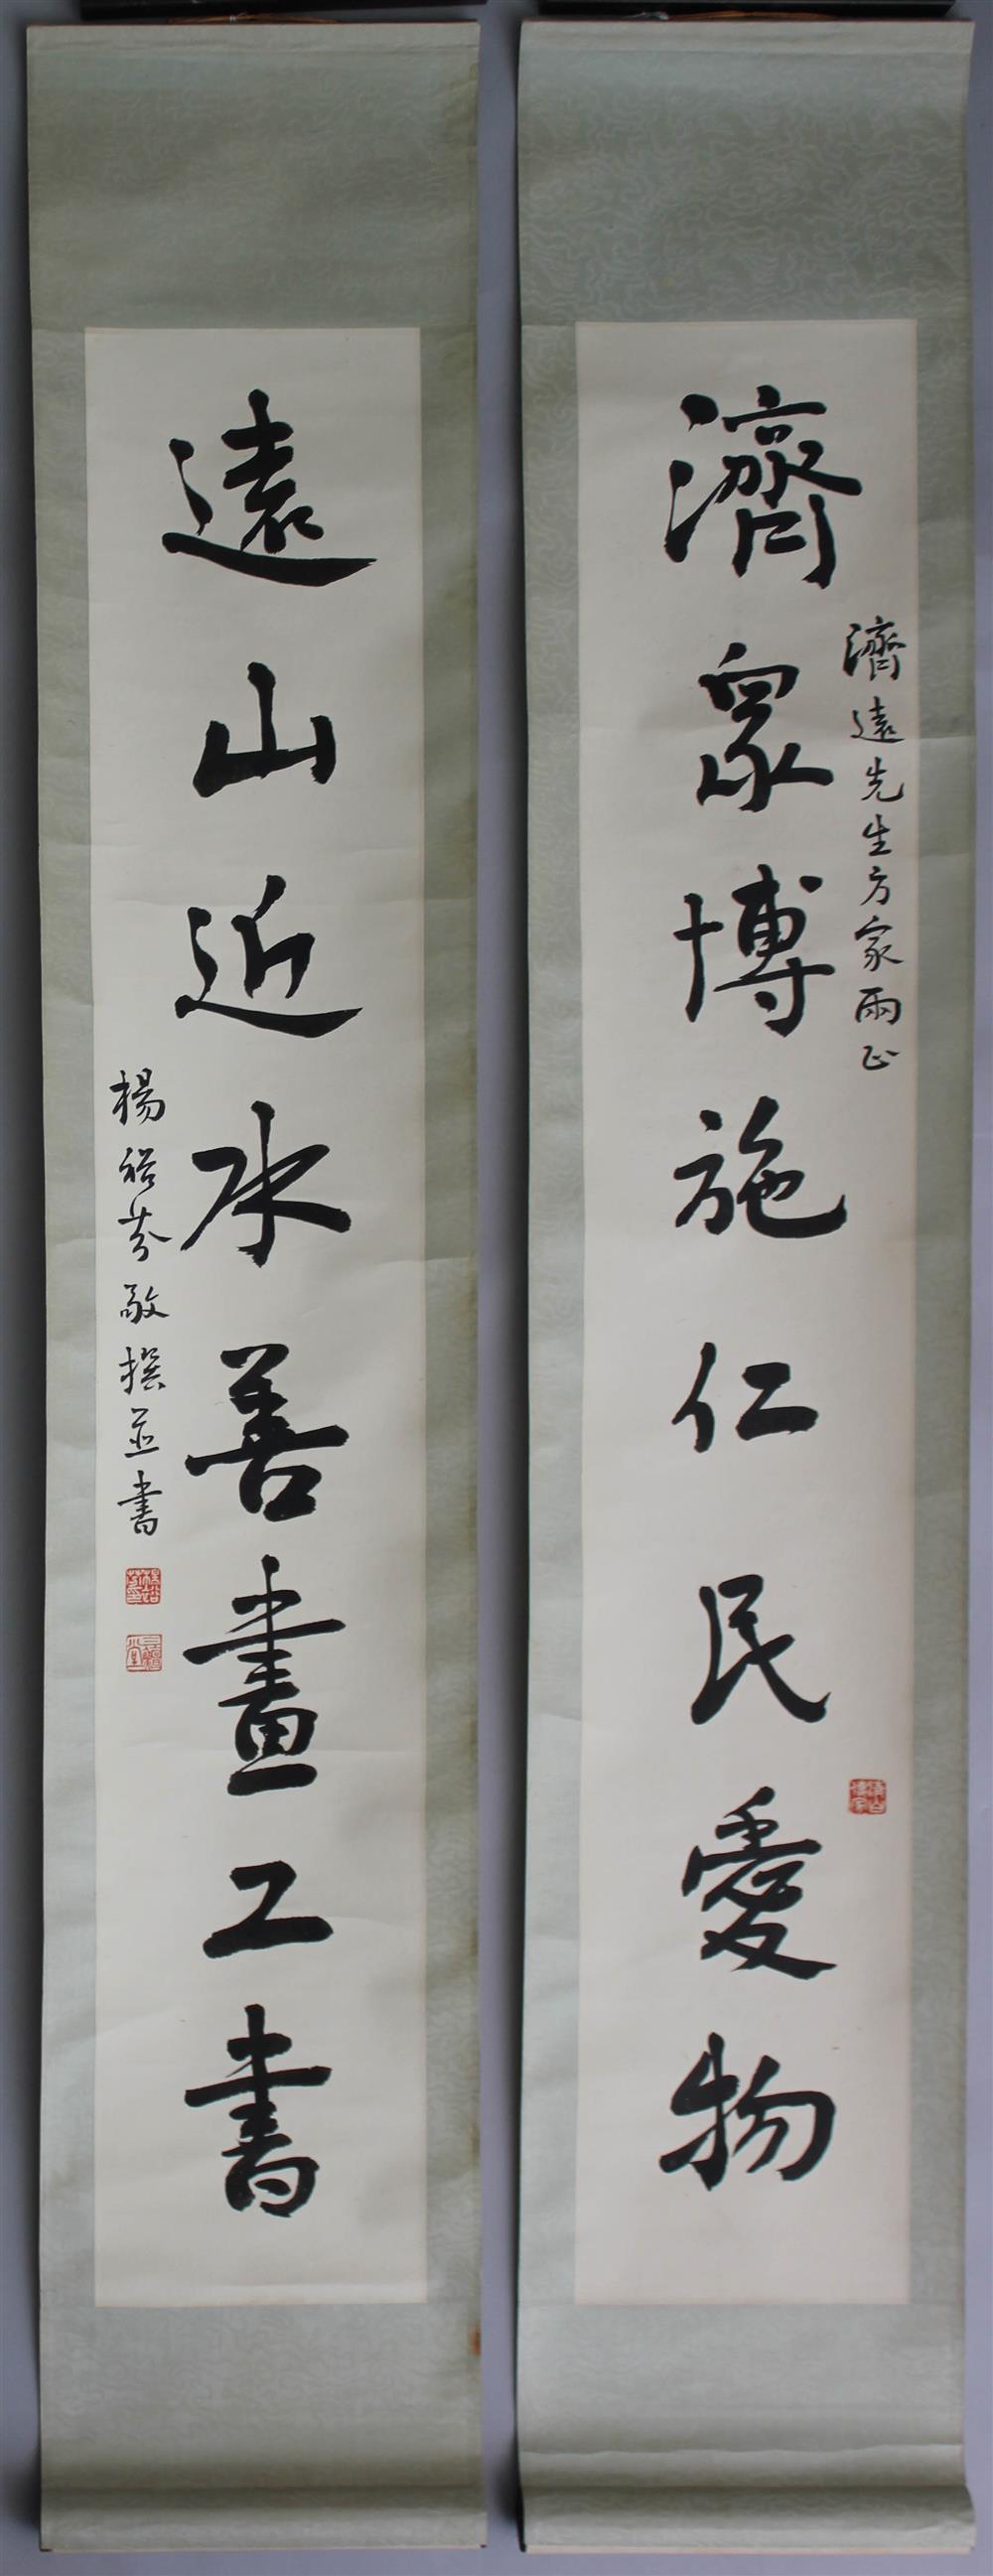 濟遠先生方家兩正
濟眾博施仁民愛物
遠山近水善畫工書
楊裕芬敬撰並書